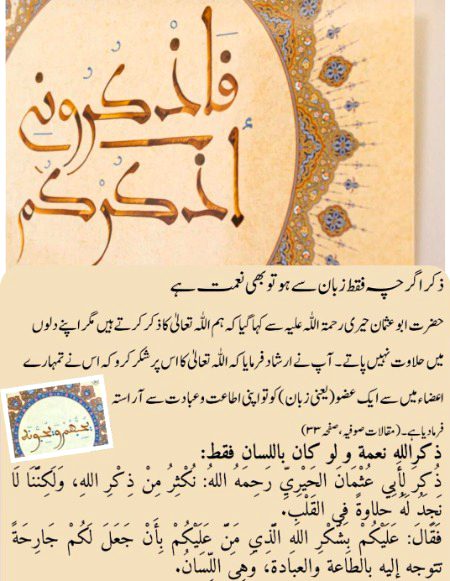 فَاذْكُرُونِي
أَذْكُرْكُم
ذکر اگرچہ فقط زبان سے ہو تو بھی نعمت ہے
حضرت ابو عثمان حیری رحمۃ اللہ علیہ سے کہا گیا کہ ہم اللہ تعالیٰ کا ذکر کرتے ہیں مگر اپنے دلوں
میں حلاوت نہیں پاتے۔ آپ نے ارشاد فرمایا کہ اللہ تعالیٰ کا اس پر شکر کرو کہ اس نے تمہارے
اعضاء میں سے ایک عضو (یعنی زبان) کو تو اپنی اطاعت و عبادت سے آراستہ
فرمادیا ہے۔ (مقالات صوفیہ، صفحہ ۳۳)
يحبهم ويحبونه
ذكر الله نعمة و لو كان باللسان فقط:
ذُكِرَ لِأَبِي عُثْمَانَ الحَيْرِيِّ رَحِمَهُ اللهُ: نُكْثِرُ مِنْ ذِكْرِ اللهِ، وَلَكِنَّنَا لَا
نَجِدُ لَهُ حَلاوَةً فِي القَلْبِ.
فَقَالَ: عَلَيْكُمْ بِشُكْرِ اللهِ الَّذِي مَنَّ عَلَيْكُمْ بِأَنْ جَعَلَ لَكُمْ جَارِحَةً
تتوجه إليه بالطاعة والعبادة، وهي اللِّسَانُ.